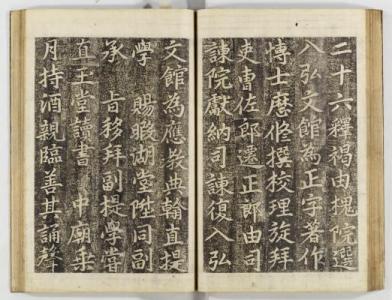 二十六釋褐由槐院選
入弘文館為正字著作
博士歷修撰校理旋拜
吏曹佐郎遷正郎由司
諫院獻納司諫復入弘
文館為應教典翰直提
學 賜暇湖堂陞同副
承 旨移拜副提學嘗
直玉堂讀書 中廟乘
月持酒親臨善其誦聲